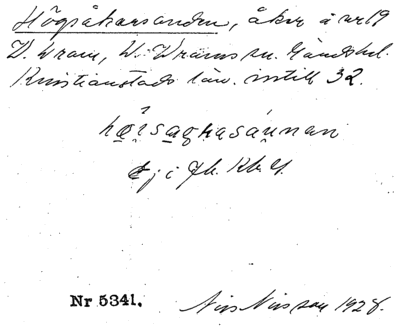 Högsåkersanden, åker å nr 19
V. Vram, V. Vrams sn. Gärds hd.
Kristianstads län. intill 32.
høi̯saqkasánnan
Ej i Jb. Kb. Gf.
Nr 5341. Nils Nilsson 1928.